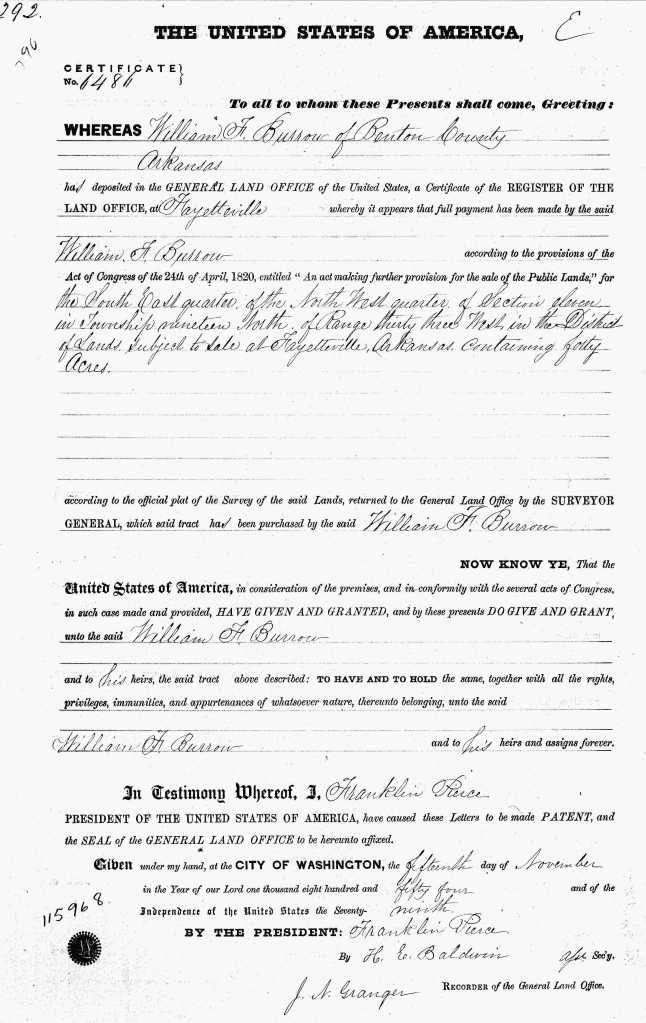 292.
THE UNITED STATES OF AMERICA,
E
CERTIFICATE
No. 6486
To all to whom these Presents shall come, Greeting:
WHEREAS William F. Burrow of Benton County
Arkansas
has deposited in the GENERAL LAND OFFICE of the United States, a Certificate of the REGISTER OF THE
LAND OFFICE, at Fayetteville whereby it appears that full payment has been made by the said
William F. Burrow according to the provisions of the
Act of Congress of the 24th of April, 1820, entitled "An act making further provision for the sale of the Public Lands," for
the South East quarter, of the North West quarter, of Section eleven
in Township nineteen North, of Range thirty three West, in the District
of Lands subject to sale at Fayetteville, Arkansas containing forty
Acres.
according to the official plat of the Survey of the said Lands, returned to the General Land Office by the SURVEYOR
GENERAL, which said tract has been purchased by the said William F. Burrow
NOW KNOW YE, That the
United States of America, in consideration of the premises, and in conformity with the several acts of Congress,
in such case made and provided, HAVE GIVEN AND GRANTED, and by these presents DO GIVE AND GRANT,
unto the said William F. Burrow
and to his heirs, the said tract above described: TO HAVE AND TO HOLD the same, together with all the rights,
privileges, immunities, and appurtenances of whatsoever nature, thereunto belonging, unto the said
William F. Burrow and to his heirs and assigns forever.
In Testimony Whereof, I, Franklin Pierce
PRESIDENT OF THE UNITED STATES OF AMERICA, have caused these Letters to be made PATENT, and
the SEAL of the GENERAL LAND OFFICE to be hereunto affixed.
Given under my hand, at the CITY OF WASHINGTON, the fifteenth day of November
in the Year of our Lord one thousand eight hundred and fifty four and of the
Independence of the United States the Seventy-ninth.
115968
BY THE PRESIDENT: Franklin Pierce
By H. E. Baldwin Sec'y.
J. N. Granger RECORDER of the General Land Office.